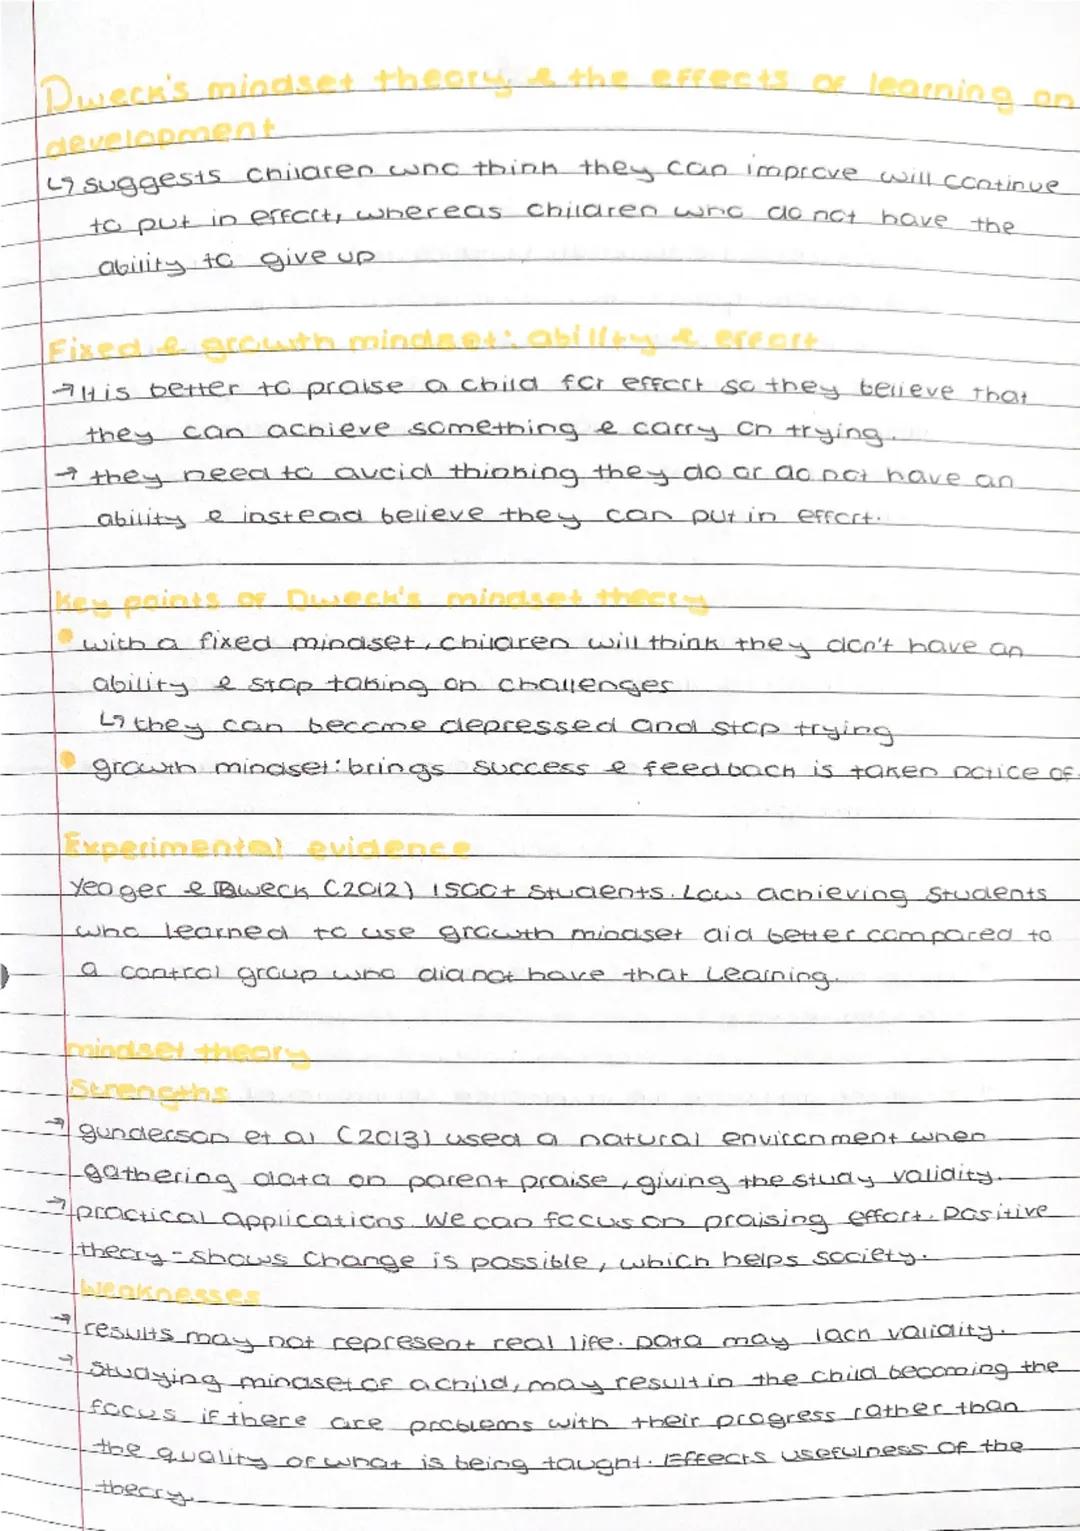 Dweck's mindset theory & the effects of learning on
development
↳ suggests children who think they can improve will continue
to put in effort, whereas children who do not have the
ability to give up
Fixed & growth mindset: ability & effort
→ It is better to praise a child for effort so they believe that
they can achieve something & carry on trying.
→ they need to avoid thinking they do or do not have an
ability & instead believe they can put in effort.
Key points of Dweck's mindset theory
• with a fixed mindset, children will think they don't have an
ability & stop taking on challenges
↳ they can become depressed and stop trying
• growth mindset: brings success & feedback is taken notice of.
Experimental evidence
Yeager & Dweck (2012) 1500+ students. Low achieving students
who learned to use growth mindset did better compared to
a control group who did not have that learning.
mindset theory
Strengths
→ gunderson et al (2013) used a natural environment when
gathering data on parent praise, giving the study validity.
→ practical applications. We can focus on praising effort. Positive
theory - shows change is possible, which helps society.
Weaknesses
→ results may not represent real life. Data may lack validity.
→ Studying mindset of a child, may result in the child becoming the
focus if there are problems with their progress rather than
the quality of what is being taught. Effects usefulness of the
theory.